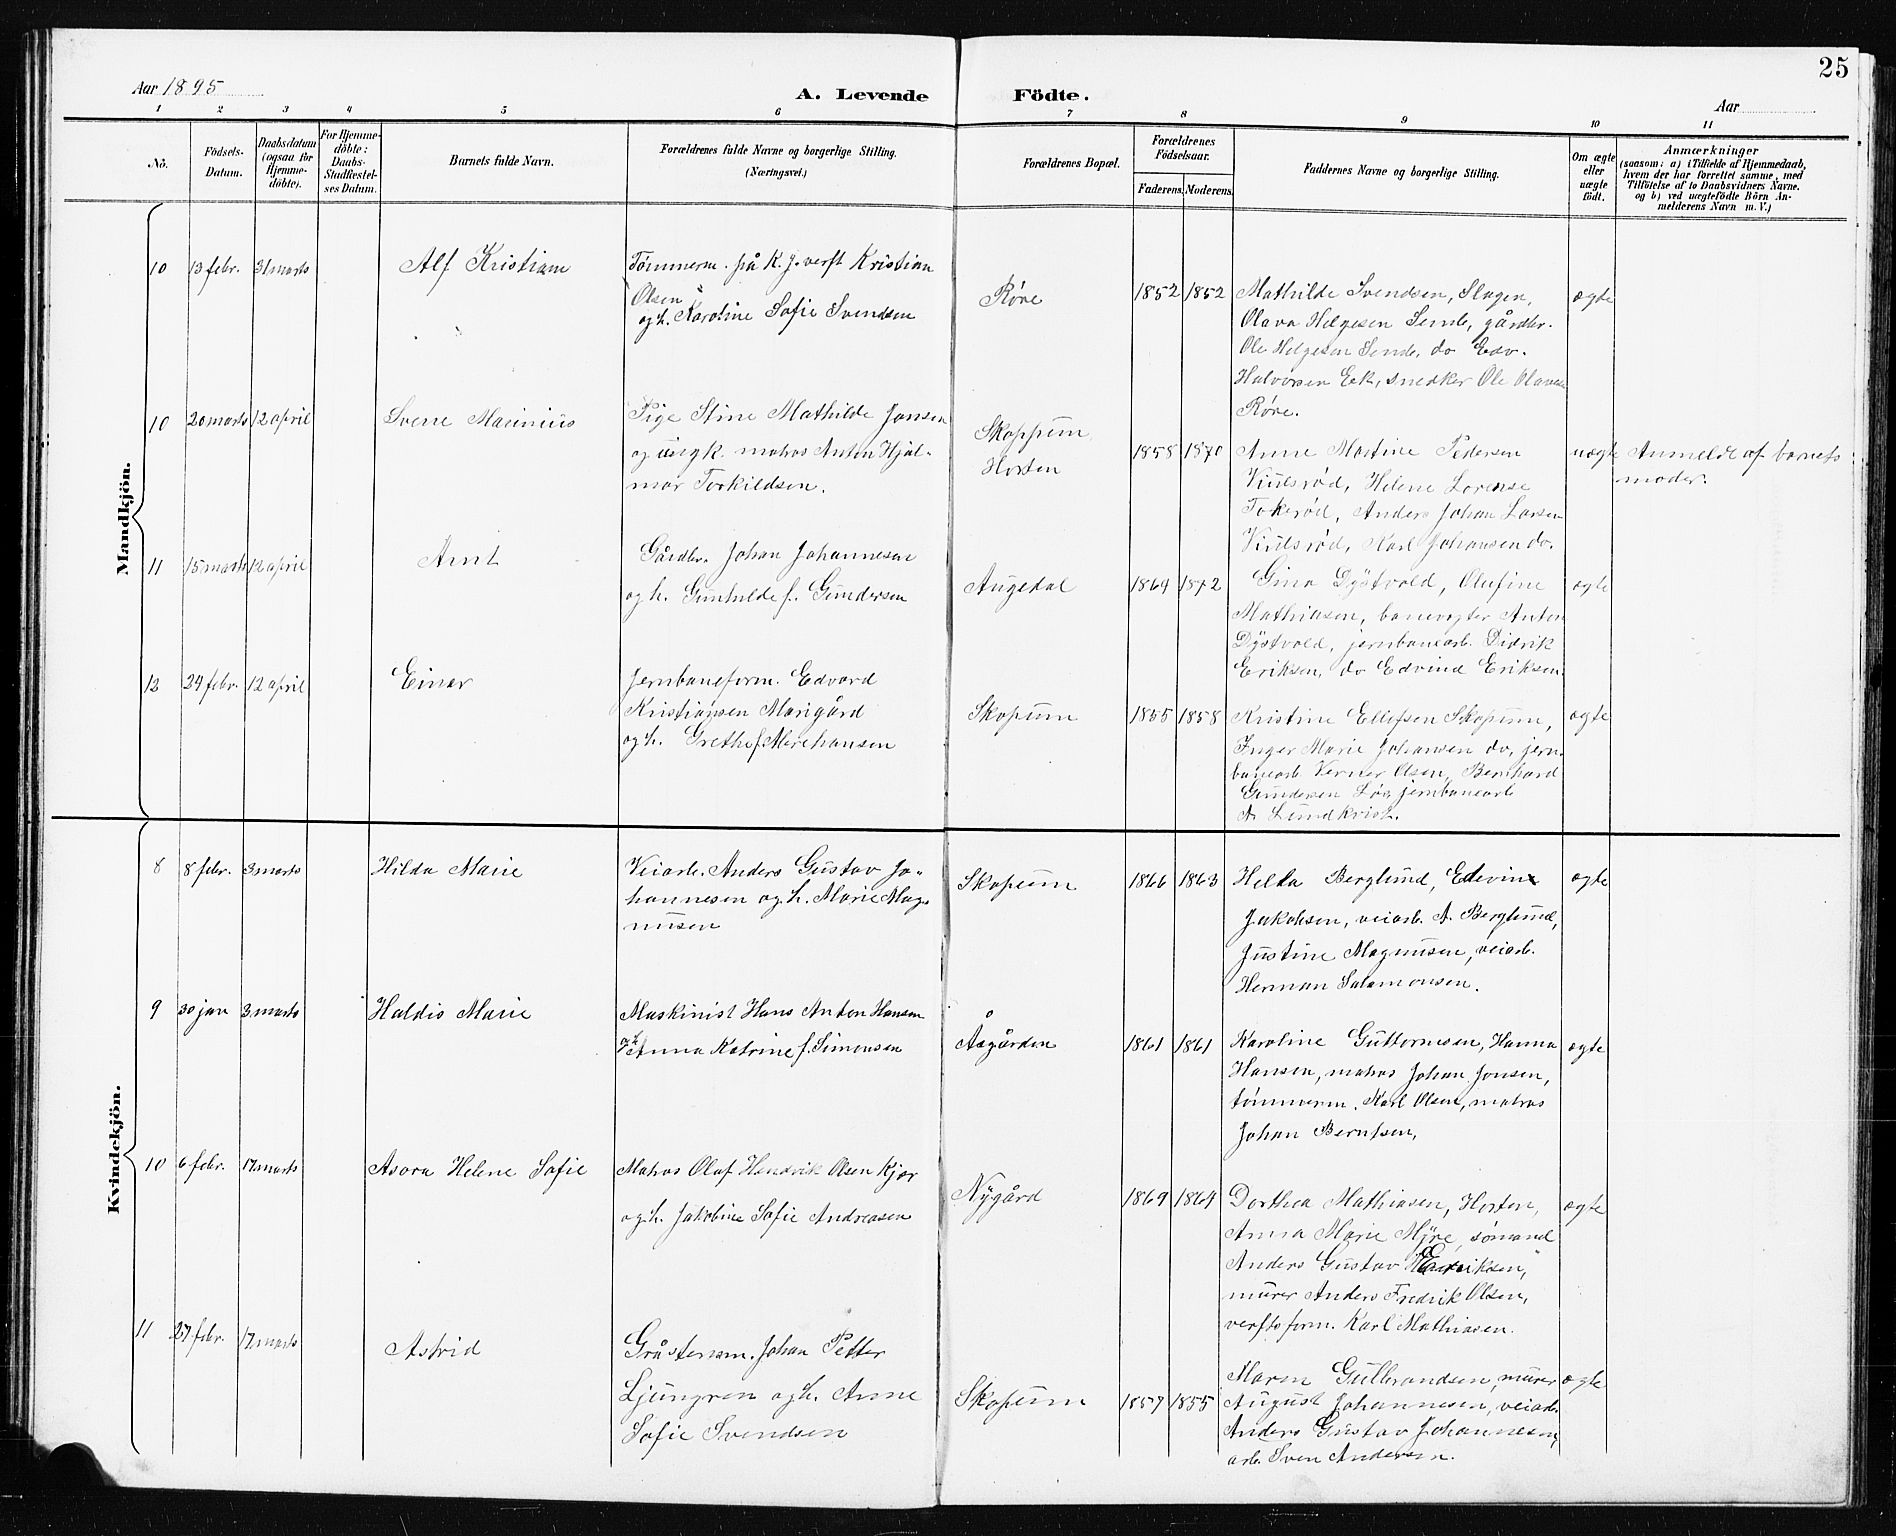 25
Aar 1895
A. Levende Födte.
Aar
1 2 3 4 5 6 7 8 9 10 11
No.
Födsels-
Datum.
Daabsdatum
(ogsaa for
Hjemme-
döbte).
For Hjemme-
döbte:
Daabs-
Stadfæstel-
ses Datum.
Barnets fulde Navn.
Forældrenes fulde Navne og borgerlige Stilling.
(Næringsvei.)
Forældrenes Bopæl.
Forældrenes
Födselsaar.
Faderens. Moderens.
Faddernes Navne og borgerlige Stilling.
Om ægte
eller
uægte
födt.
Anmærkninger
(saasom: a) i Tilfælde af Hjemmedaab,
hvem der har forrettet samme, med
Tilföielse af to Daabsvidners Navne.
og b) ved uægtefödte Börn An-
melderens Navn m. V.)
Mandkjön.
10 13 febr. 31 marts
Alf Kristian
Tømmerm. på K. J. verft Kristian
Olsen
og h. Karoline Sofie Svendsen
Røre
1852 1852
Mathilde Svendsen, Slagen,
Olava Helgesen Semb, gårdbr.
Ole Helgesen Semb, do Edv.
Halvorsen Eek, snedker Ole Olavsen
Røre.
ægte
10 20 marts 12 april
Svene Marinius
Pige Stine Mathilde Jansen
og ungk. matros Anton Hjal-
mar Torkildsen.
Skoppum
Horten
1858 1870
Anne Martine Pedersen
Viulsrød, Helene Lorense
Tokerød, Anders Johan Larsen
Viulsrød, Karl Johansen do.
uægte
Anmeldt af barnets
moder.
11 15 marts 12 april
Arnt
Gårdbr. Johan Johannesen
og h. Gunhilde f. Gundersen
Augedal
1864 1872
Gina Dystvold, Olufine
Mathiasen, banevogter Anton
Dystvold, jernbanearb. Didrik
Eriksen, do Edvind Eriksen.
ægte
12 24 febr. 12 april
Einar
Jernbaneform. Edvard
Kristiansen Marigård
og h. Grethe f. Mørehansen
Skopum
1855 1858
Kristine Ellefsen Skopum,
Inger Marie Johansen do, jern-
banearb. Verner Olsen, Bernhard
Gundersen Løs, jernbanearb.
A. Lundkrist.
ægte
Kvindekjön.
8 8 febr. 3 marts
Hilda Marie
Veiarb. Anders Gustav Jo-
hannesen og h. Marie Mag-
nusen
Skopum
1866 1863
Helda Berglund, Edevin
Jakobsen, veiarb. A. Berglund,
Justine Magnusen, veiarb.
Herman Salamonsen.
ægte
9 30 jan 3 marts
Haldis Marie
Maskinist Hans Anton Hansen
og h. Anna Katrine f. Simonsen
Åsgården
1861 1861
Karoline Guttormsen, Hanna
Hansen, matros Johan Jonsen,
tømmerm. Karl Olsen, matros
Johan Berntsen,
ægte
10 6 febr. 17 marts
Asora Helene Sofie
Matros Olaf Hendrik Olsen Kjær
og h. Jakobine Sofie Andreasen
Nygård
1869 1864
Dorthea Mathiasen, Horten,
Anna Marie Myre, sømand
Anders Gustav Eriksen,
murer Anders Fredrik Olsen,
verftsform. Karl Mathiasen.
ægte
11 27 febr. 17 marts
Astrid
Gråstensm. Johan Petter
Ljungren og h. Anne
Sofie Svendsen
Skopum
1857 1855
Maren Gulbrandsen, murer
August Johannesen, veiarb.
Anders Gustav Johannesen,
arb. Sven Andersen.
ægte